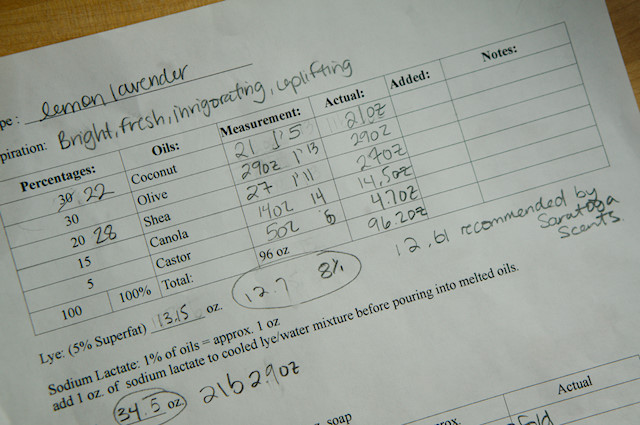 pe: lemon lavender
piration: Bright, fresh, invigorating, uplifting
Percentages: Oils: Measurement: Actual: Added: Notes:
30 22 Coconut 21 1'5 21oz
30 Olive 29oz 1'13 29oz
20 28 Shea 27 1'11 27oz
15 Canola 14oz 14 14.5oz
5 Castor 5oz 4.7oz
100 100% Total: 96 oz 96.2oz
12.7 8%
12.61 recommended by
Saratoga
Scents.
Lye: (5% Superfat) 13.15 oz.
Sodium Lactate: 1% of oils = approx. 1 oz
add 1 oz. of sodium lactate to cooled lye/water mixture before pouring into melted oils.
34.5 oz 2lb 2.9oz
soap rox. Actual